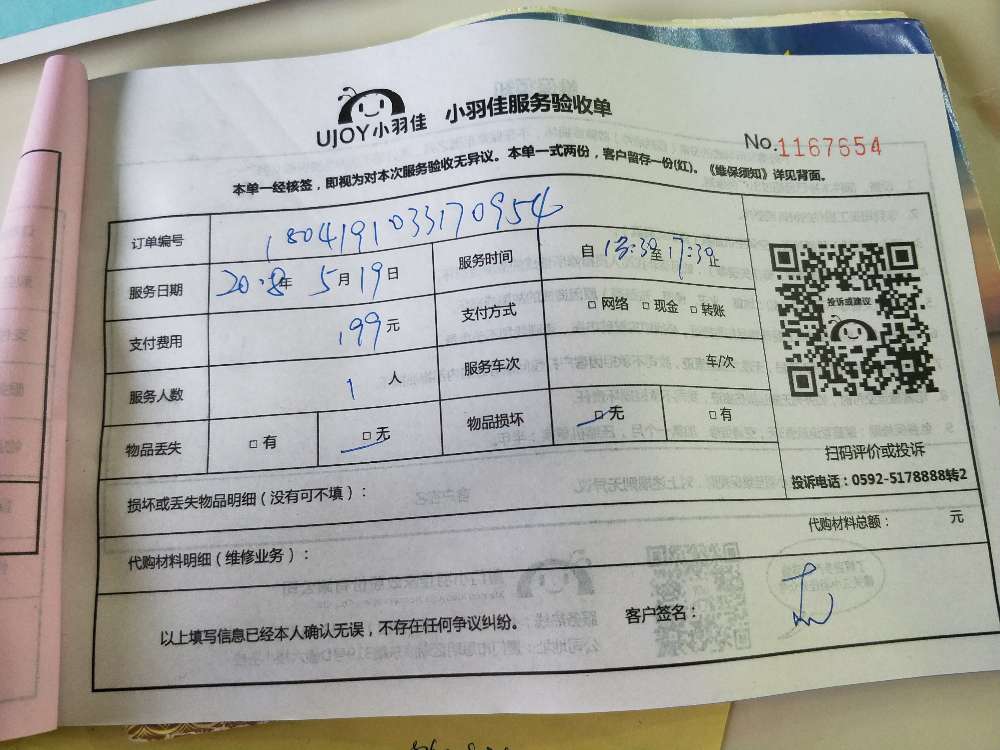 UJOY小羽佳 小羽佳服务验收单
No.1167654
本单一经核签，即视为对本次服务验收无异议。本单一式两份，客户留存一份(红)。《维保须知》详见背面。
订单编号 180419103317095４
服务日期 2018年5月19日 服务时间 自13:30至17:30止
支付费用 199元 支付方式 □网络 □现金 □转账
服务人数 1人 服务车次 车/次
物品丢失 □有 □无 物品损坏 □无 □有
投诉或建议
扫码评价或投诉
投诉电话：0592-5178888转2
损坏或丢失物品明细（没有可不填）：
代购材料明细（维修业务）： 代购材料总额： 元
以上填写信息已经本人确认无误，不存在任何争议纠纷。 客户签名：